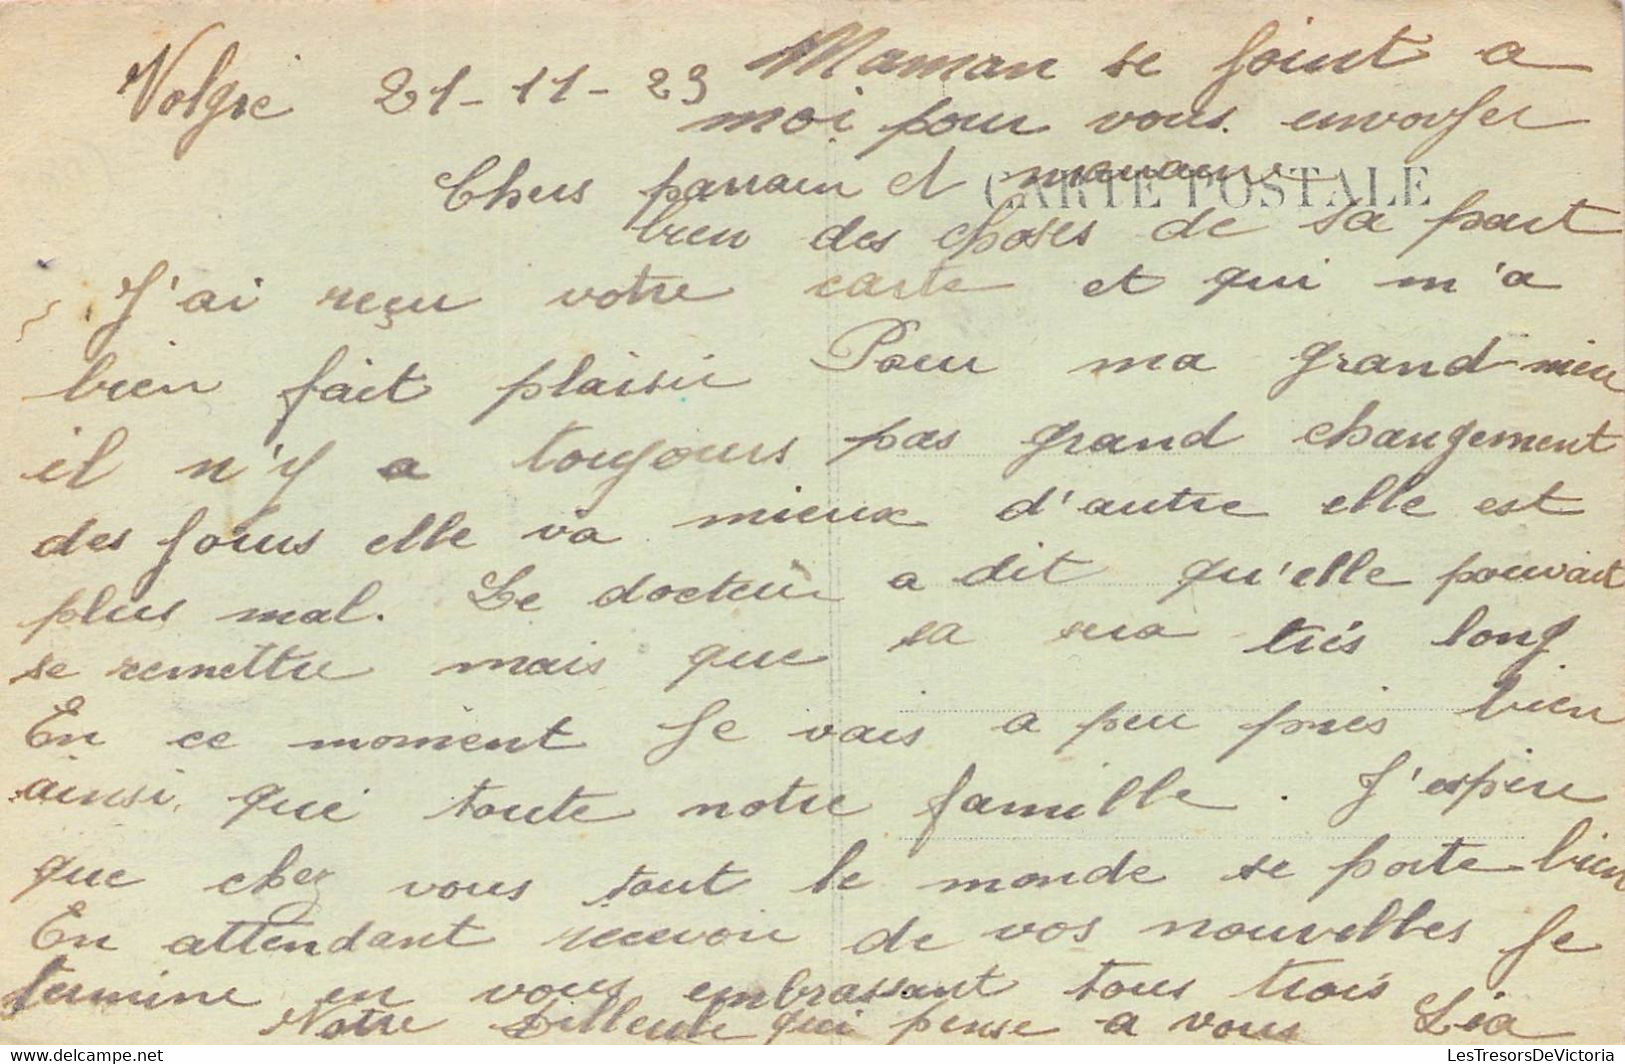 Volgré 21-11-23
Maman se joint a
moi pour vous envoyer
Chers parrain et marraine
CARTE POSTALE
bien des choses de sa part
J'ai reçu votre carte et qui m'a
bien fait plaisir Pour ma grand-mère
il n'y a toujours pas grand changement
des jours elle va mieux d'autre elle est
plus mal. Le docteur a dit qu'elle pouvait
se remettre mais que sa sera très long
En ce moment je vais a peu près bien
ainsi que toute notre famille. J'espère
que chez vous tout le monde se porte bien
En attendant recevoir de vos nouvelles je
termine en vous embrassant tous trois
Notre filleule qui pense a vous Léa
LesTresorsDeVictoria
delcampe.net